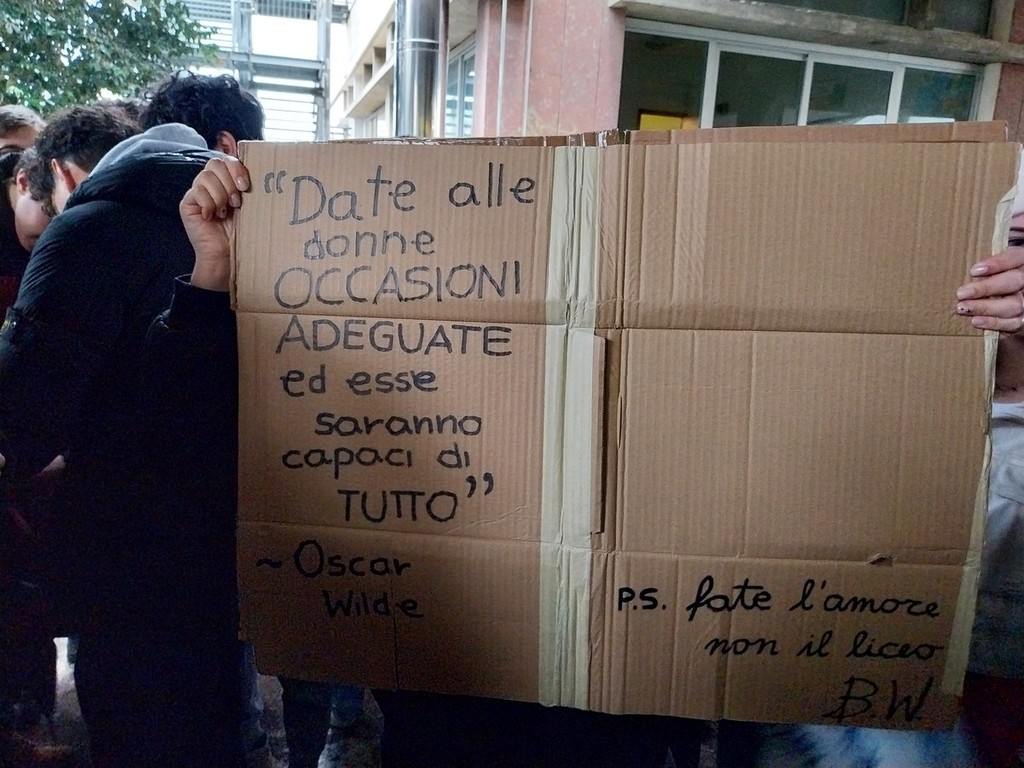 "Date alle
donne
OCCASIONI
ADEGUATE
ed esse
saranno
capaci di
TUTTO"
~ Oscar
Wilde
P.S. fate l'amore
non il liceo
B.W.